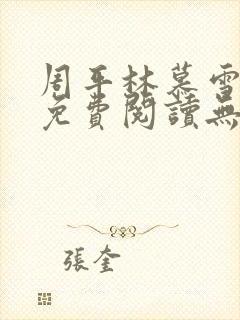 周平林慕雪
免費閱讀無
張奎